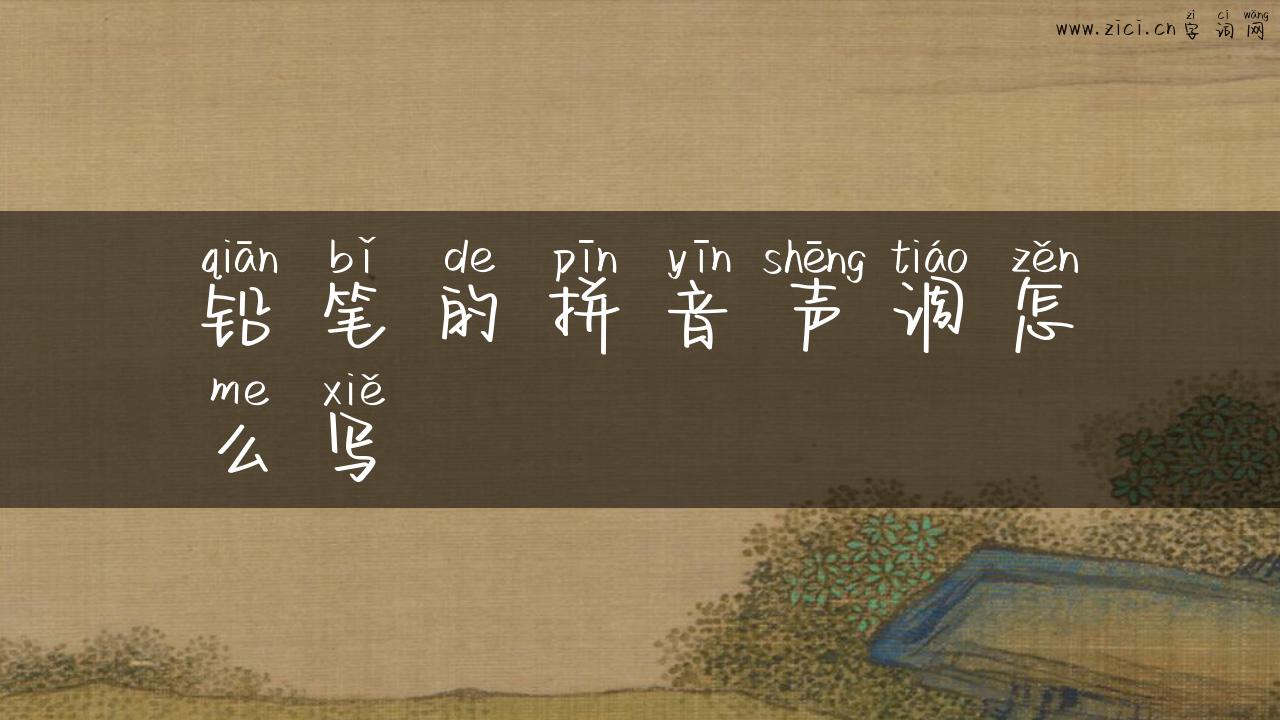 zì cí wǎng
www.zici.cn 字词网
qiān bǐ de pīn yīn shēng tiáo zěn
铅笔的拼音声调怎
me xiě
么写